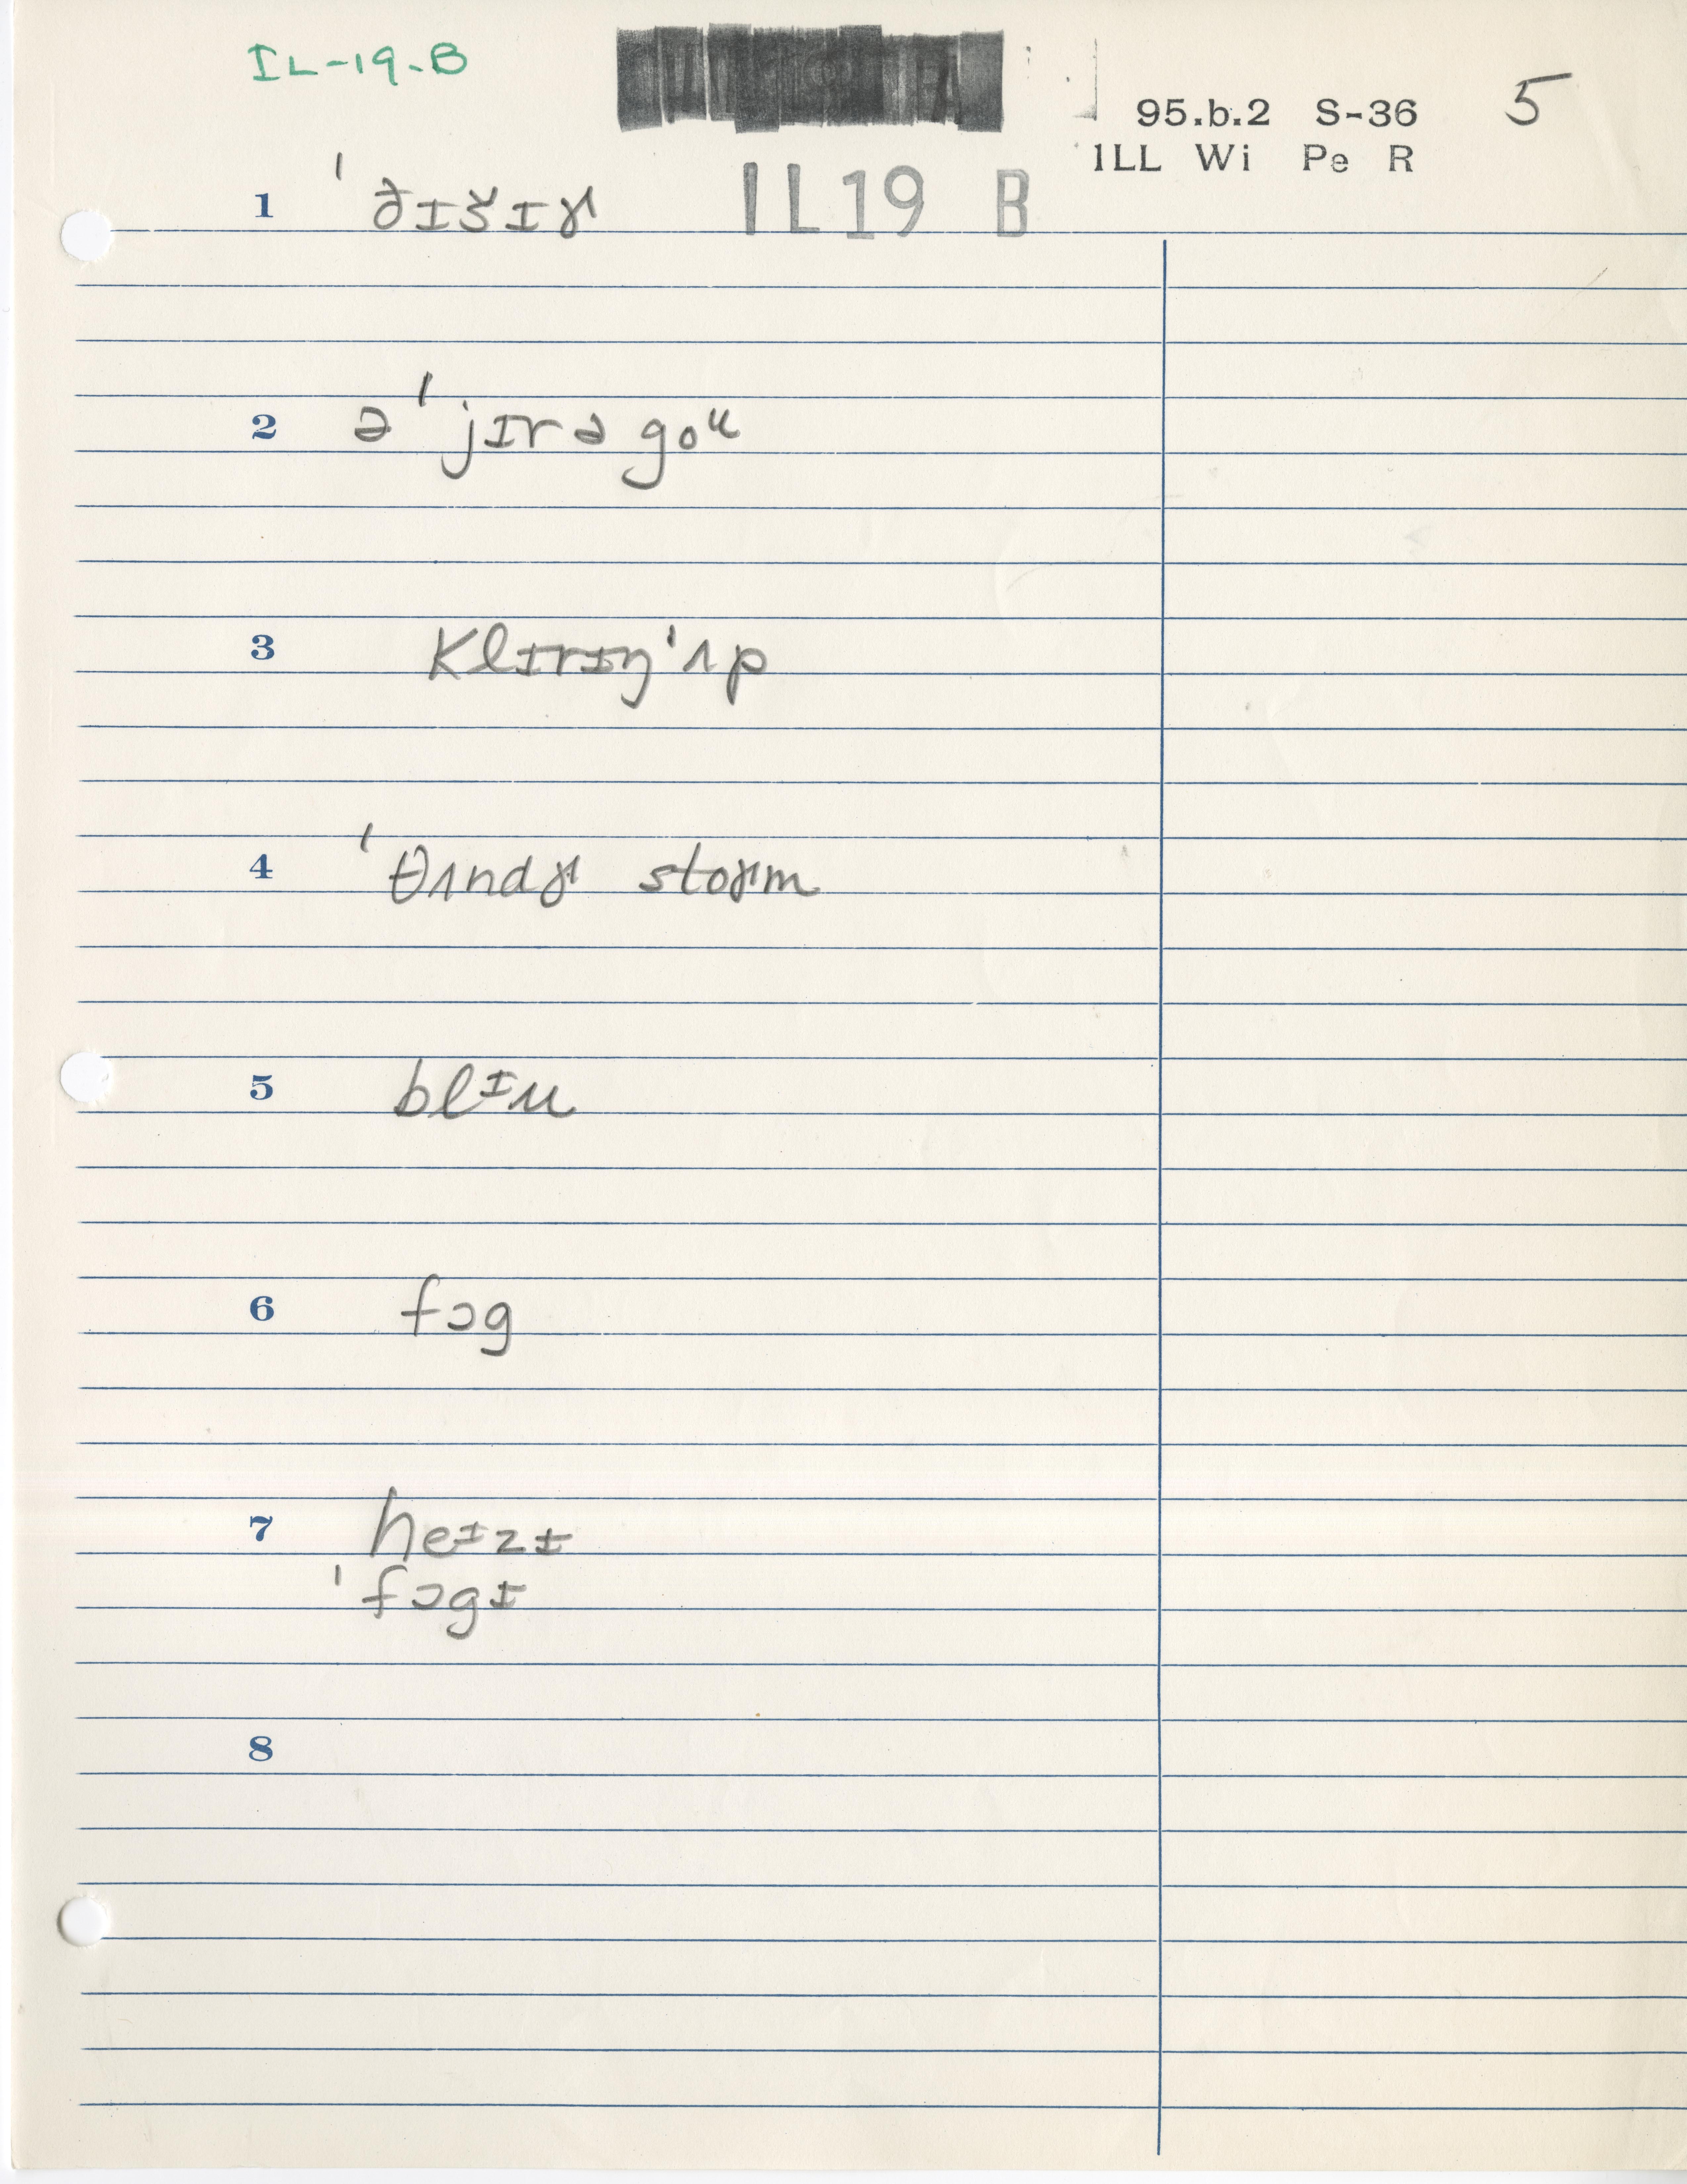 IL-19-B
95.b.2 S-36 5
1LL Wi Pe R
1 'ðɪs̆ɪɚ IL19 B
2 ə'jɪrə goᵘ
3 klɪrɪŋ'ʌp
4 'θʌndɚ stoɚm
5 blᶦu
6 fɔg
7 heᶦzɪ
'fɔgɪ
8